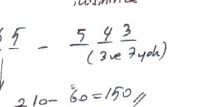 5 - 5 4 3
(3 ve 7 yok)
210 - 60 = 150 //